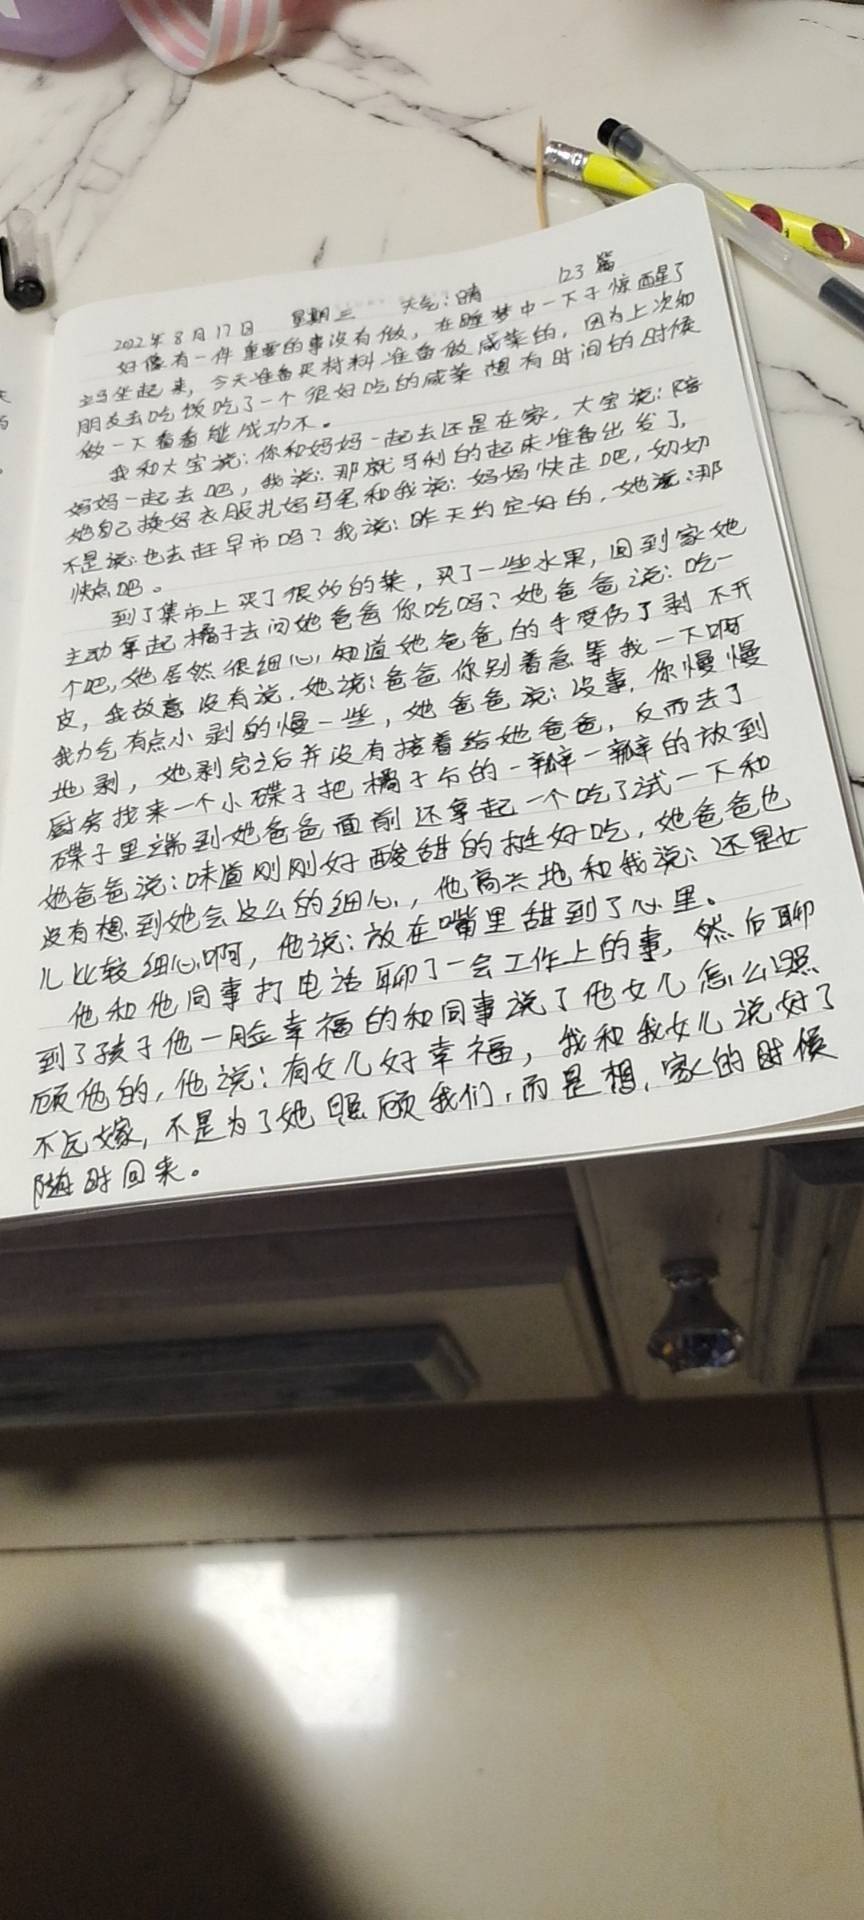 2022年8月17日 星期三 天气:晴 123篇
好像有一件重要的事没有做,在睡梦中一下子惊醒了
立马坐起来,今天准备买材料准备做咸菜的,因为上次和
朋友去吃饭吃了一个很好吃的咸菜 想有时间的时候
做一下看看能成功不。
我和大宝说:你和妈妈一起去还是在家,大宝说:陪
妈妈一起去吧,我说:那就马利的起床准备出发了,
她自己换好衣服扎好马尾和我说:妈妈快走吧,奶奶
不是说:也去赶早市吗?我说:昨天约定好的,她说:那
快点吧。
到了集市上买了很多的菜,买了一些水果,回到家她
主动拿起橘子去问她爸爸你吃吗?她爸爸说:吃一
个吧,她居然很细心,知道她爸爸的手受伤了剥不开
皮,我故意没有说,她说:爸爸你别着急等我一下啊
我力气有点小剥的慢一些,她爸爸说:没事,你慢慢
地剥,她剥完之后并没有接着给她爸爸,反而去了
厨房找来一个小碟子把橘子分的一瓣一瓣的放到
碟子里端到她爸爸面前还拿起一个吃了试一下和
她爸爸说:味道刚刚好酸甜的挺好吃,她爸爸也
没有想到她会这么的细心,他高兴地和我说:还是女
儿比较细心啊,他说:放在嘴里甜到了心里。
他和他同事打电话聊了一会工作上的事,然后聊
到了孩子他一脸幸福的和同事说了他女儿怎么照
顾他的,他说:有女儿好幸福,我和我女儿说好了
不远嫁,不是为了她照顾我们,而是想,家的时候
随时回来。